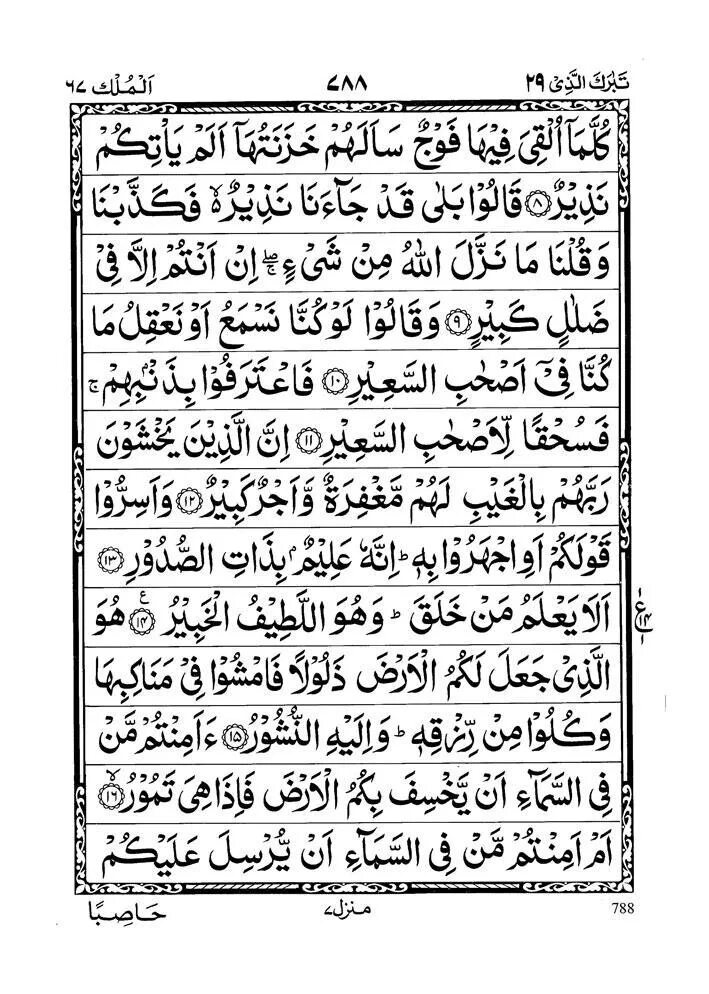 تَبٰرَكَ الَّذِیْ ٢٩ ٧٨٨ اَلْمُلْك ٦٧
كُلَّمَاۤ اُلْقِیَ فِیْهَا فَوْجٌ سَاَلَهُمْ خَزَنَتُهَاۤ اَلَمْ یَاْتِكُمْ
نَذِیْرٌ ﴿٨﴾ قَالُوْا بَلٰی قَدْ جَآءَنَا نَذِیْرٌ ۙ۬ فَكَذَّبْنَا
وَ قُلْنَا مَا نَزَّلَ اللّٰهُ مِنْ شَیْءٍ ۖۚ اِنْ اَنْتُمْ اِلَّا فِیْ
ضَلٰلٍ كَبِیْرٍ ﴿٩﴾ وَ قَالُوْا لَوْ كُنَّا نَسْمَعُ اَوْ نَعْقِلُ مَا
كُنَّا فِیْۤ اَصْحٰبِ السَّعِیْرِ ﴿١٠﴾ فَاعْتَرَفُوْا بِذَنْۢبِهِمْ ۚ
فَسُحْقًا لِّاَصْحٰبِ السَّعِیْرِ ﴿١١﴾ اِنَّ الَّذِیْنَ یَخْشَوْنَ
رَبَّهُمْ بِالْغَیْبِ لَهُمْ مَّغْفِرَةٌ وَّ اَجْرٌ كَبِیْرٌ ﴿١٢﴾ وَ اَسِرُّوْا
قَوْلَكُمْ اَوِ اجْهَرُوْا بِهٖ ؕ اِنَّهٗ عَلِیْمٌۢ بِذَاتِ الصُّدُوْرِ ﴿١٣﴾
اَلَا یَعْلَمُ مَنْ خَلَقَ ؕ وَ هُوَ اللَّطِیْفُ الْخَبِیْرُ ﴿١٤﴾ ع هُوَ
الَّذِیْ جَعَلَ لَكُمُ الْاَرْضَ ذَلُوْلًا فَامْشُوْا فِیْ مَنَاكِبِهَا
وَ كُلُوْا مِنْ رِّزْقِهٖ ؕ وَ اِلَیْهِ النُّشُوْرُ ﴿١٥﴾ ءَاَمِنْتُمْ مَّنْ
فِی السَّمَآءِ اَنْ یَّخْسِفَ بِكُمُ الْاَرْضَ فَاِذَا هِیَ تَمُوْرُ ۙ ﴿١٦﴾
اَمْ اَمِنْتُمْ مَّنْ فِی السَّمَآءِ اَنْ یُّرْسِلَ عَلَیْكُمْ
788 منزل ٧ حَاصِبًا